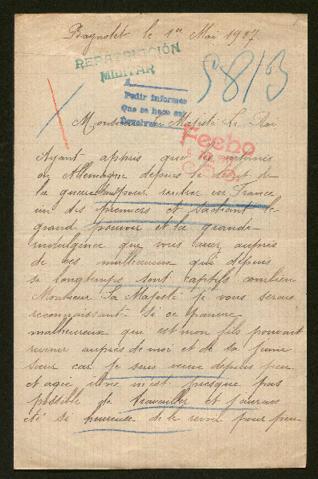 Bagnolet le 1er Mai 1917
REPATRIACIÓN
MILITAR
5813
A
Pedir informes
Que se hace
Monsieur Majesté Le Roi
Fecho
Ayant appris que les
en Allemagne depuis le début de
la guerre pouvoir rentrer en France
un des premiers et sachant le
grand pouvoir et la grande
indulgence que vous avez auprès
de ces malheureux qui depuis
si longtemps sont captifs combien
Monsieur Sa Majesté je vous serais
reconnaissante si ce pauvre
malheureux que est mon fils pouvait
revenir auprès de moi et de sa jeune
sœur car je suis veuve depuis peu
et agée il ne m'est presque pas
possible de travailler et j'aurais
été si heureuse de le revoir pour peu